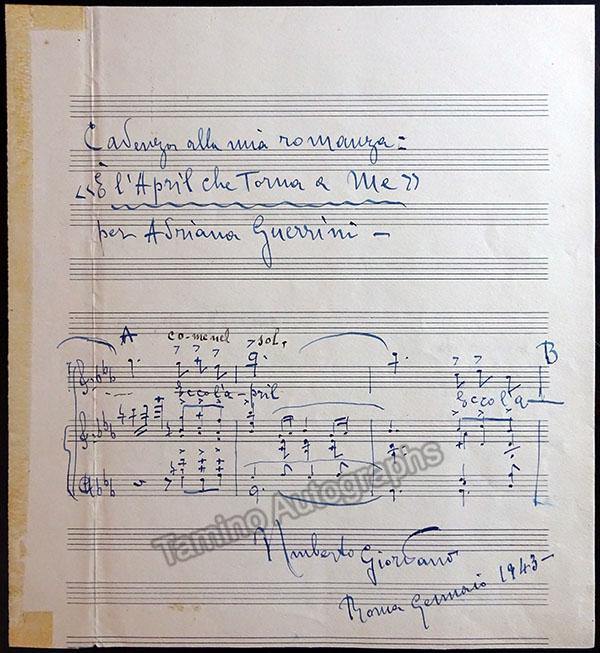 Cadenza alla mia romanza =
«È l'April che Torna a Me»
per Adriana Guerrini —
A
co-me nel
sol,
B
Eccol'a-pril
Eccol'a
Tamino Autographs
Umberto Giordano
Roma Gennaio 1943-